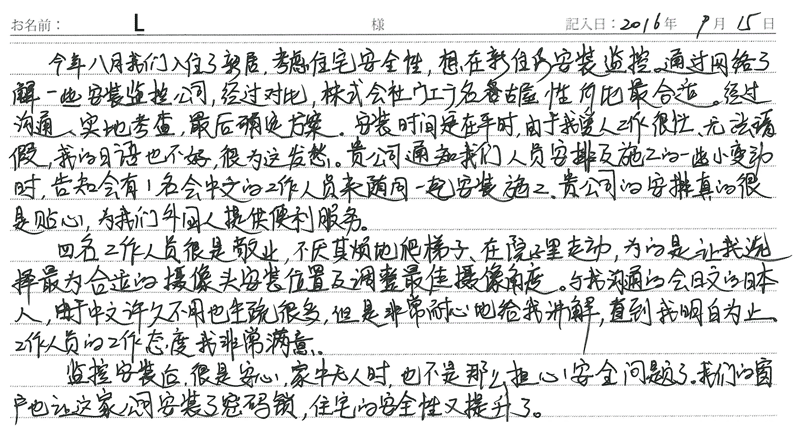 お名前： L 様 記入日：2016年 9月 15日
今年八月我们入住了新居，考虑住宅安全性，想在新住所安装监控。通过网络了
解一些安装监控公司，经过对比，株式会社ウエノ名古屋性价比最合适。经过
沟通、实地考查，最后确定方案。安装时间定在平时，由于我爱人工作很忙，无法请
假，我的日语也不好，很为这发愁。贵公司通知我们人员安排及施工的一些小变动
时，告知会有1名会中文的工作人员来随同一起安装施工。贵公司的安排真的很
是贴心，为我们外国人提供便利服务。
四名工作人员很是敬业，不厌其烦地爬梯子、在院子里走动，为的是让我选
择最为合适的摄像头安装位置及调整最佳摄像角度。与我沟通的会日文的日本
人，由于中文许久不用也生疏很多，但是非常耐心地给我讲解，直到我明白为止。
工作人员的工作态度我非常满意。
监控安装后，很是安心，家中无人时，也不是那么担心安全问题了。我们的窗
户也让这家公司安装了密码锁，住宅的安全性又提升了。